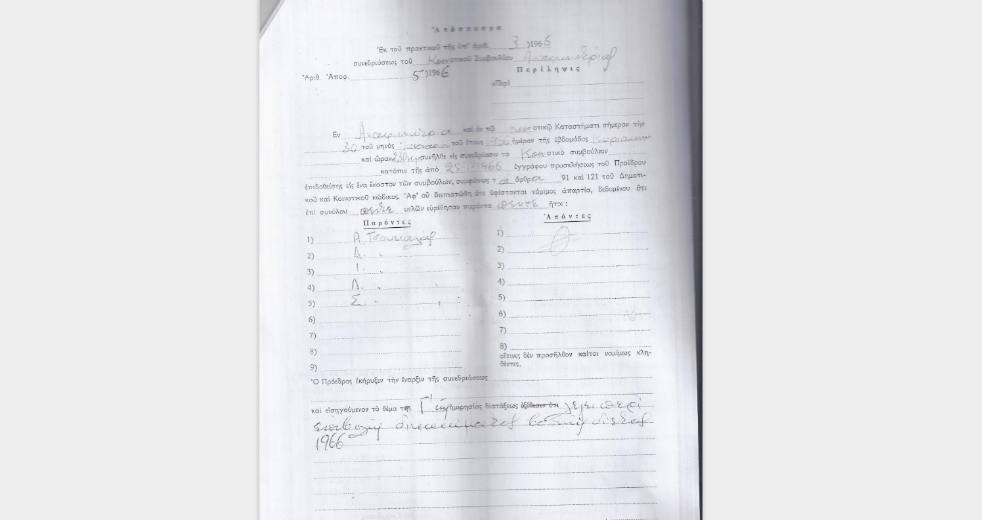 Ἀπόσπασμα
Ἐκ τοῦ πρακτικοῦ τῆς ὑπ' ἀριθ. 3)1966
συνεδριάσεως τοῦ Κοινοτικοῦ Συμβουλίου
Ἀριθ. Ἀποφ. 5)1966
Περίληψις
«Περὶ
Ἐν καὶ ἐν τῷ οτικῷ Καταστήματι σήμερον τὴν
30 τοῦ μηνὸς τοῦ ἔτους 1966 ἡμέραν τῆς ἑβδομάδος Κυριακὴν
καὶ ὥραν συνῆλθε εἰς συνεδρίασιν τὸ Κοινοτικὸ συμβούλιον
κατόπιν τῆς ἀπὸ 1966 ἐγγράφου προσκλήσεως τοῦ Προέδρου
ἐπιδοθείσης εἰς ἕνα ἕκαστον τῶν συμβούλων, συμφώνως τὰ ἄρθρα 91 καὶ 121 τοῦ Δημοτι-
κοῦ καὶ Κοινοτικοῦ κώδικος. Ἀφ' οὗ διεπιστώθη ὅτι ὑφίσταται νόμιμος ἀπαρτία, δεδομένου ὅτι
ἐπὶ συνόλου πέντε μελῶν εὑρέθησαν παρόντα πέντε ἤτοι:
Παρόντες
Ἀπόντες
1) Α.
2) Δ. "
3) Ι. "
4) Λ. "
5) Σ. "
6)
7)
8)
9)
1)
2)
3)
4)
5)
6)
7)
8)
οἵτινες δὲν προσῆλθον καίτοι νομίμως κλη-
θέντες.
Ὁ Πρόεδρος ἐκήρυξεν τὴν ἔναρξιν τῆς συνεδριάσεως
καὶ εἰσηγούμενος τὸ θέμα τῆς Γ' ἡμερησίας διατάξεως ἐξέθεσεν ὅτι λέγει περὶ
ἐπιβολῆς δικαιώματος βοσκῆς
1966